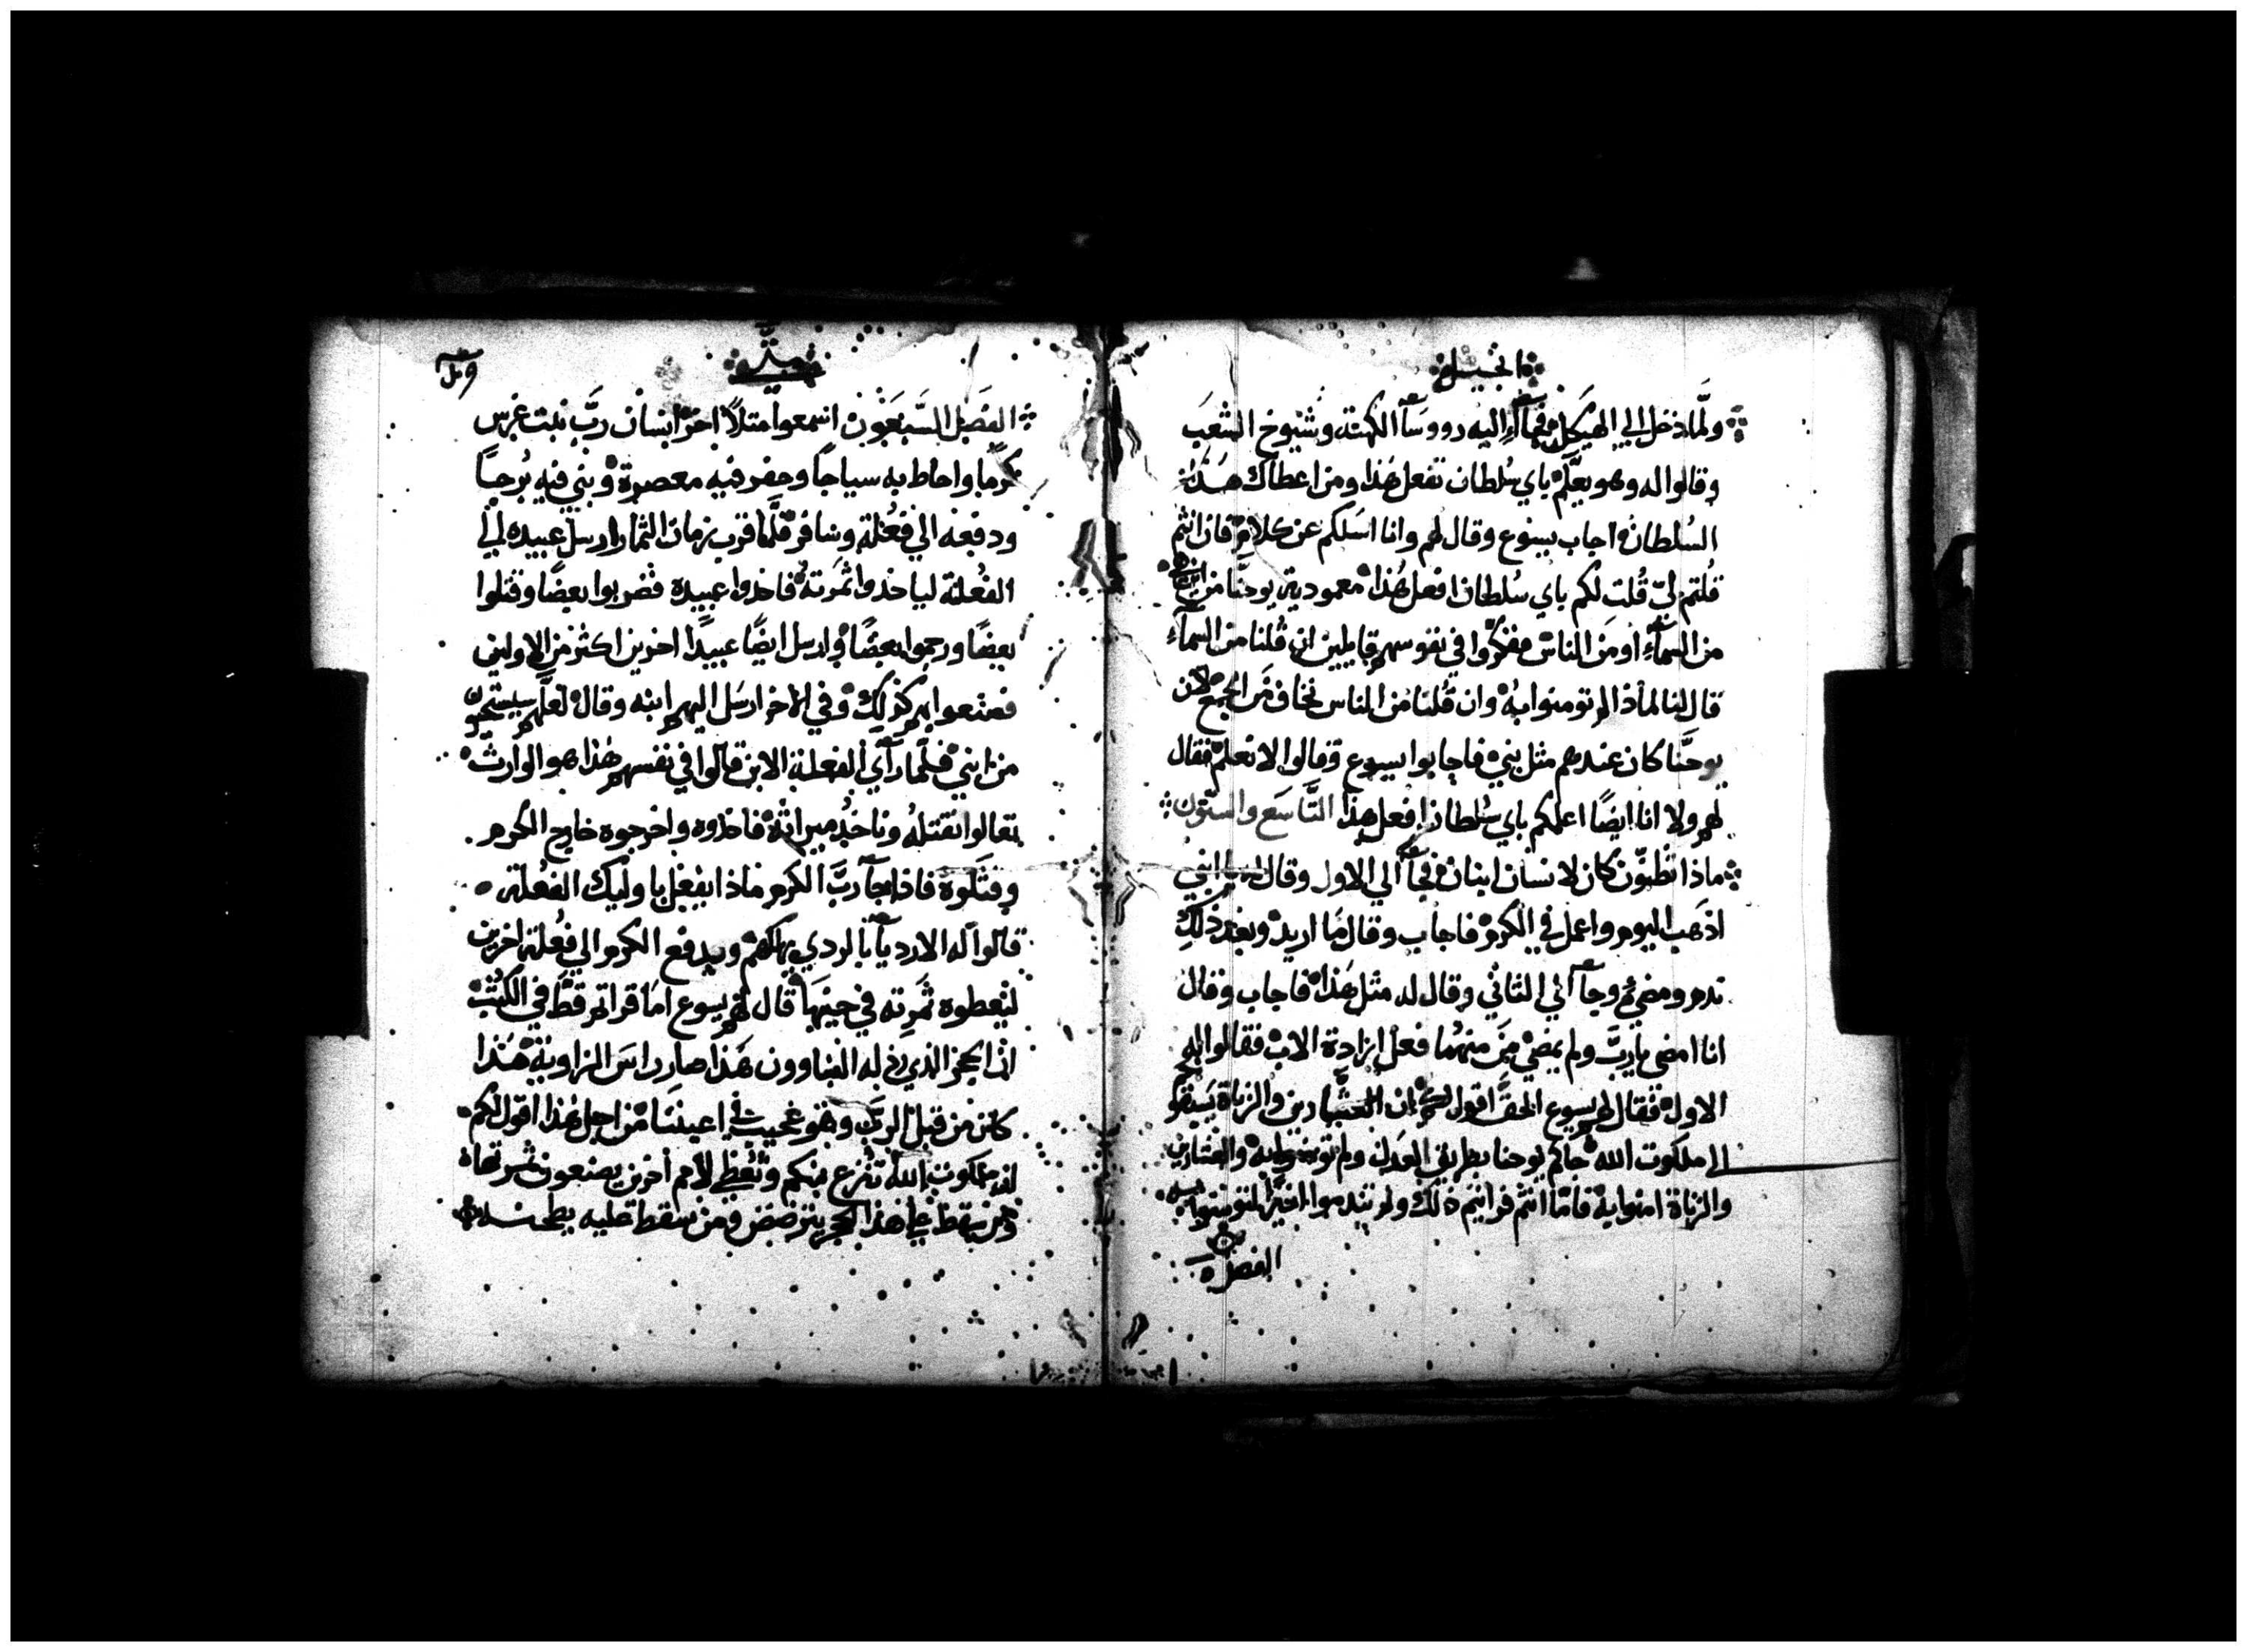 انجيل
ولَّما دخل الي الهيكل فجآء اليه رووسَآ الكهنته وشيوخ الشعَب
وقالوا له وهو يعلّم باي سُلطان تفعل هَذا ومن اعطاك هَذا
السُلطان اجاب يسوع وقال لهم وانا اسَلكم عن كلام فان انتم
قُلتم لي قُلت لكم باي سُلطان افعل هُذا معمودية يوحنّا من اين هي
من السمآءِ او من الناس ففكروا في نفوسهم قايلين ان قُلنا من السمآءِ
قال لنا لماذا لم تومنوا به وان قُلنا من الناس نخاف من الجمع لان
يوحنَّا كان عندهم مثل نبي فاجابوا يسوع وقالوا لا نعلم فقال
لهم ولا انا ايضًا اعلمكم باي سُلطان افعل هذا التَّاسَع والستّون
ماذا تظنّون كان لانسان ابنان فجآ الي الاول وقال له يا ابني
اذهَب اليوم واعمل في الكرم فاجاب وقال مَا اريد وبعد ذلك
ندم ومضي وجآ الي الثاني وقال له مثل هَذا فاجاب وقال
انا امضي يا ربّ ولم يمضي مَن منهُما فعل ارادة الاب فقالوا له
الاول فقال لهم يسوع الحقَّ اقول لكم ان العشّارين والزناة يَسبقوكم
الي ملكوت الله جاكم يوحنا بطريق العدل ولم تومنوا به والعشارين
والزناة امنوا به فامّا انتم فرايتم ذلك ولم تندموا اخيرًا لتومنوا به
الفصل
متّي
الفَصِل السَّبعَون اسمعوا مثلاً اخر انسَان ربّ بيت غرس
كرمًا واحاط به سياجًا وحفر فيه معصرة وبني فيه بُرجًا
ودفعه الي فَعُلة وسَافر فلَّما قرب زمان الثمار ارسل عبيده الي
الفُعلة لياخذوا ثمَرته فاخذوا عبيده فضربوا بعضًا وقتلوا
بعضًا ورجموا بعضًا وارسل ايضًا عبيدًا اخرين اكثر من الاولين
فصنعوا بهم كذلك وفي الاخر ارسَل اليهم ابنه وقال لعلَّهم يستحيون
من ابني فلَّما رآي الفعلة الابن قالوا في نفسهم هُذا هو الوارث
تعالوا نقتلهُ وناخذ ميراثهُ فاخذوه واخرجوه خارج الكرم
وقتَلوه فاذا جآ ربَّ الكرم ماذا يفعل باوليك الفعُلة
قالوا له الاردياآ بالردي يهلكهم ويدفع الكرم الي فُعلة اخرين
ليُعطوه ثمَرته في حينهَا قال لهم يسوع امَا قراتم قطّ في الكتُب
ان الحجر الذي رذله البناوون هَذا صار راسَ الزاوية هَذا
كان من قبل الربّ وهو عجيب في اعيننا من اجل هُذا اقول لكم
ان ملكوت الله تنُزع منكم وتُعطي لامم اخرين يصنعون ثمرتها
ومن سقط علي هذا الحجر يترضض ومن سقط عليه يطحنه